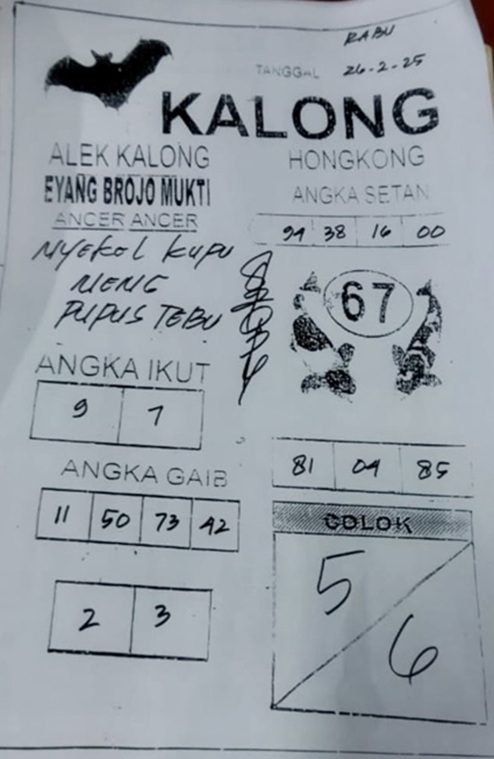 RABU
TANGGAL 26-2-25
KALONG
ALEK KALONG
EYANG BROJO MUKTI
ANCER ANCER
NYEKEL KUPU
MENG
PUPUS TEBU
HONGKONG
ANGKA SETAN
94 38 16 00
67
ANGKA IKUT
9 7
81 04 85
ANGKA GAIB
11 50 73 42
2 3
COLOK
5
6